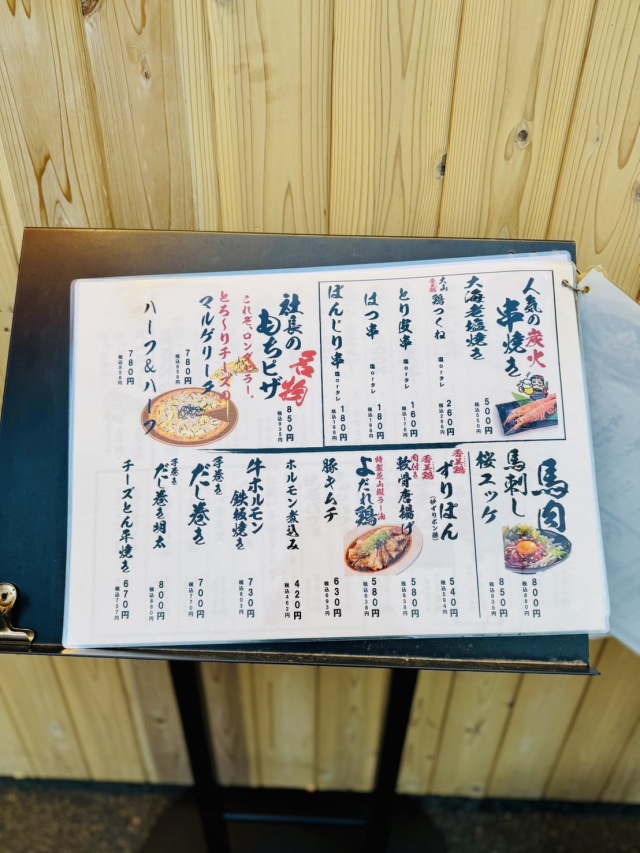 人気の炭火
串焼き
大海老塩焼き
500円
税込550円
大山
鶏つくね 塩orタレ
260円
税込286円
とり皮串 塩orタレ
160円
税込176円
はつ串 塩orタレ
180円
税込198円
ぼんじり串 塩orタレ
180円
税込198円
社長の
もちピザ
850円
税込935円
これぞ、ロングセラー。
とろ〜りチーズの
マルゲリータ
780円
税込858円
ハーフ&ハーフ
780円
税込858円
馬肉
馬刺し
800円
税込880円
桜ユッケ
850円
税込935円
香美鶏
ずりぽん
540円
税込594円
香美鶏
肉付き
軟骨唐揚げ
580円
税込638円
よだれ鶏
580円
税込638円
豚キムチ
630円
税込693円
ホルモン煮込み
420円
税込462円
牛ホルモン
鉄板焼き
730円
税込803円
手巻き
だし巻き
700円
税込770円
手巻き
だし巻き明太
800円
税込880円
チーズとん平焼き
670円
税込737円